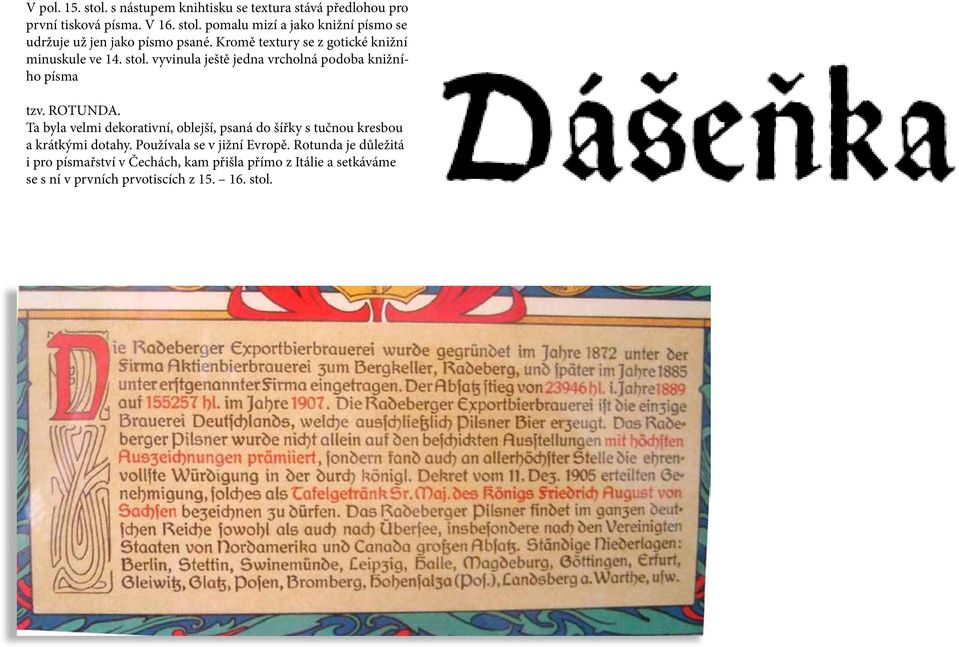 V pol. 15. stol. s nástupem knihtisku se textura stává předlohou pro
první tisková písma. V 16. stol. pomalu mizí a jako knižní písmo se
udržuje už jen jako písmo psané. Kromě textury se z gotické knižní
minuskule ve 14. stol. vyvinula ještě jedna vrcholná podoba knižní-
ho písma
tzv. ROTUNDA.
Ta byla velmi dekorativní, oblejší, psaná do šířky s tučnou kresbou
a krátkými dotahy. Používala se v jižní Evropě. Rotunda je důležitá
i pro písmařství v Čechách, kam přišla přímo z Itálie a setkáváme
se s ní v prvních prvotiscích z 15. – 16. stol.
Dášeňka
Die Radeberger Exportbierbrauerei wurde gegründet im Jahre 1872 unter der
Firma Aktienbierbrauerei zum Bergkeller, Radeberg, und ſpäter im Jahre 1885
unter erſtgenannter Firma eingetragen. Der Abſatz ſtieg von 23946 hl. i. Jahre 1889
auf 155257 hl. im Jahre 1907. Die Radeberger Exportbierbrauerei iſt die einzige
Brauerei Deutſchlands, welche ausſchließlich Pilsner Bier erzeugt. Das Rade-
berger Pilsner wurde nicht allein auf den beſchickten Ausſtellungen mit höchſten
Auszeichnungen prämiiert, ſondern fand auch an allerhöchſter Stelle die ehren-
vollſte Würdigung in der durch königl. Dekret vom 11. Dez. 1905 erteilten Ge-
nehmigung, ſolches als Tafelgetränk Sr. Maj. des Königs Friedrich August von
Sachſen bezeichnen zu dürfen. Das Radeberger Pilsner findet im ganzen deut-
ſchen Reiche ſowohl als auch nach Überſee, insbeſondere nach den Vereinigten
Staaten von Nordamerika und Canada großen Abſatz. Ständige Niederlagen:
Berlin, Stettin, Swinemünde, Leipzig, Halle, Magdeburg, Göttingen, Erfurt,
Gleiwitz, Glatz, Poſen, Bromberg, Hohenſalza (Poſ.), Landsberg a. Warthe, uſw.